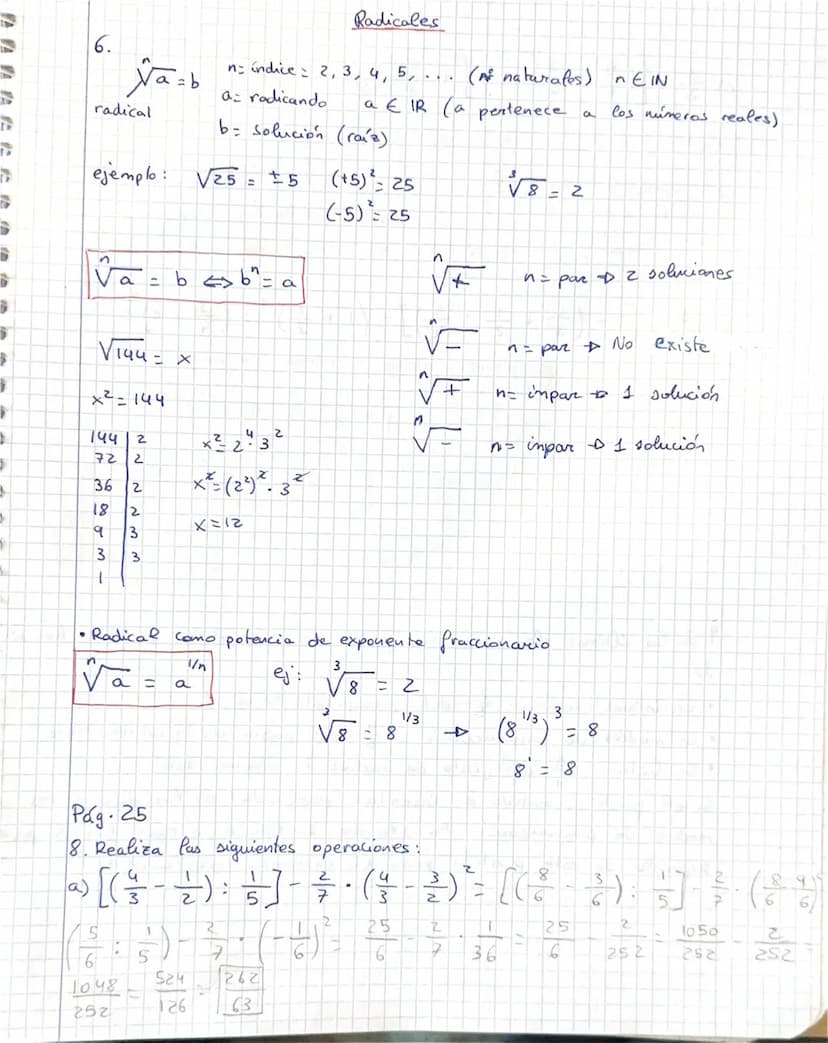 Radicales
6.
ⁿ√a = b n = índice = 2, 3, 4, 5, ... (nº naturales) n ∈ ℕ
radical a = radicando a ∈ ℝ (a pertenece a los números reales)
b = solución (raíz)
ejemplo: √25 = ±5 (+5)² = 25 ³√8 = 2
(-5)² = 25
ⁿ√a = b ⇔ bⁿ = a ⁿ√+ n = par → 2 soluciones
√144 = x ⁿ√- n = par → No existe
x² = 144 ⁿ√+ n = impar → 1 solución
144 | 2 x² = 2⁴ · 3² ⁿ√- n = impar → 1 solución
72 | 2
36 | 2 x² = (2²)² · 3²
18 | 2
9 | 3 x = 12
3 | 3
1 |
• Radical como potencia de exponente fraccionario
ⁿ√a = a^(1/n) ej: ³√8 = 2
³√8 = 8^(1/3) → (8^(1/3))³ = 8
8¹ = 8
Pág. 25
8. Realiza las siguientes operaciones:
a) [(4/3 - 1/2) : 1/5] - 2/7 · (4/3 - 3/2)² = [(8/6 - 3/6) : 1/5] - 2/7 · (8/6 - 9/6)
(5/6 : 1/5) - 2/7 · (-1/6)² = 25/6 - 2/7 · 1/36 = 25/6 - 2/252 = 1050/252 - 2/252 =
1048/252 = 524/126 = 262/63